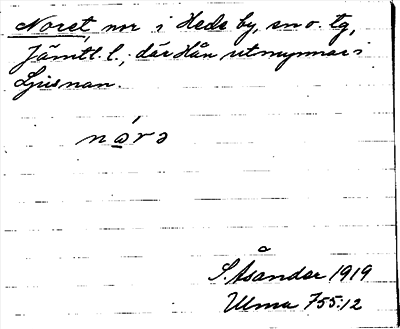 Noret, nor i Hede by, sn o. tg,
Jämtl. l., där Hån utmynnar i
Ljusnan.
nórə
S. Åsander 1919
Ulma 755:12